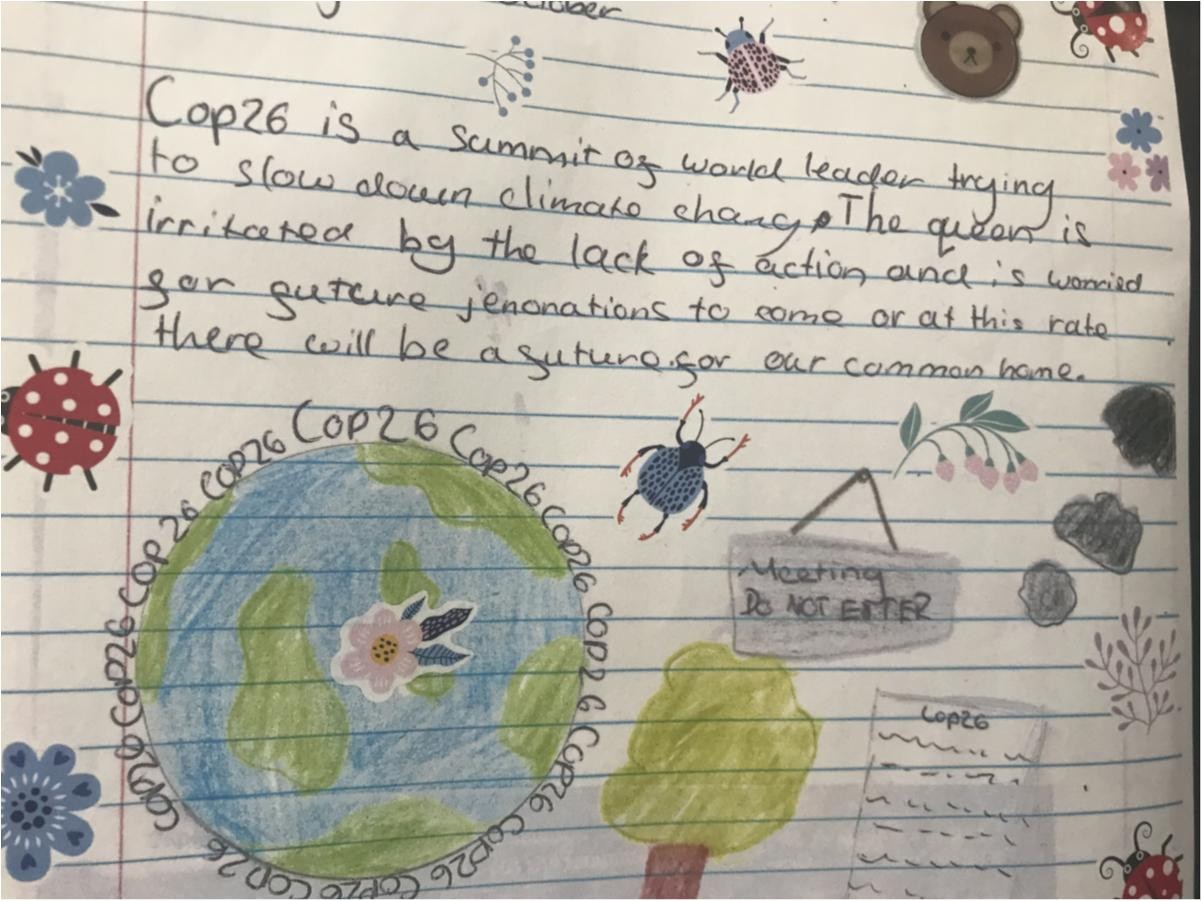 october
Cop26 is a summit of world leader trying
to slow down climate chang. The queen is
irritated by the lack of action and is worried
for future jenonations to come or at this rate
there will be a future. for our common home.
Cop26 Cop26 Cop26 Cop26 Cop26 Cop26 Cop26 Cop26 Cop26 Cop26 Cop26 Cop26 Cop26 Cop26 Cop26
Meeting
DO NOT ENTER
Cop26